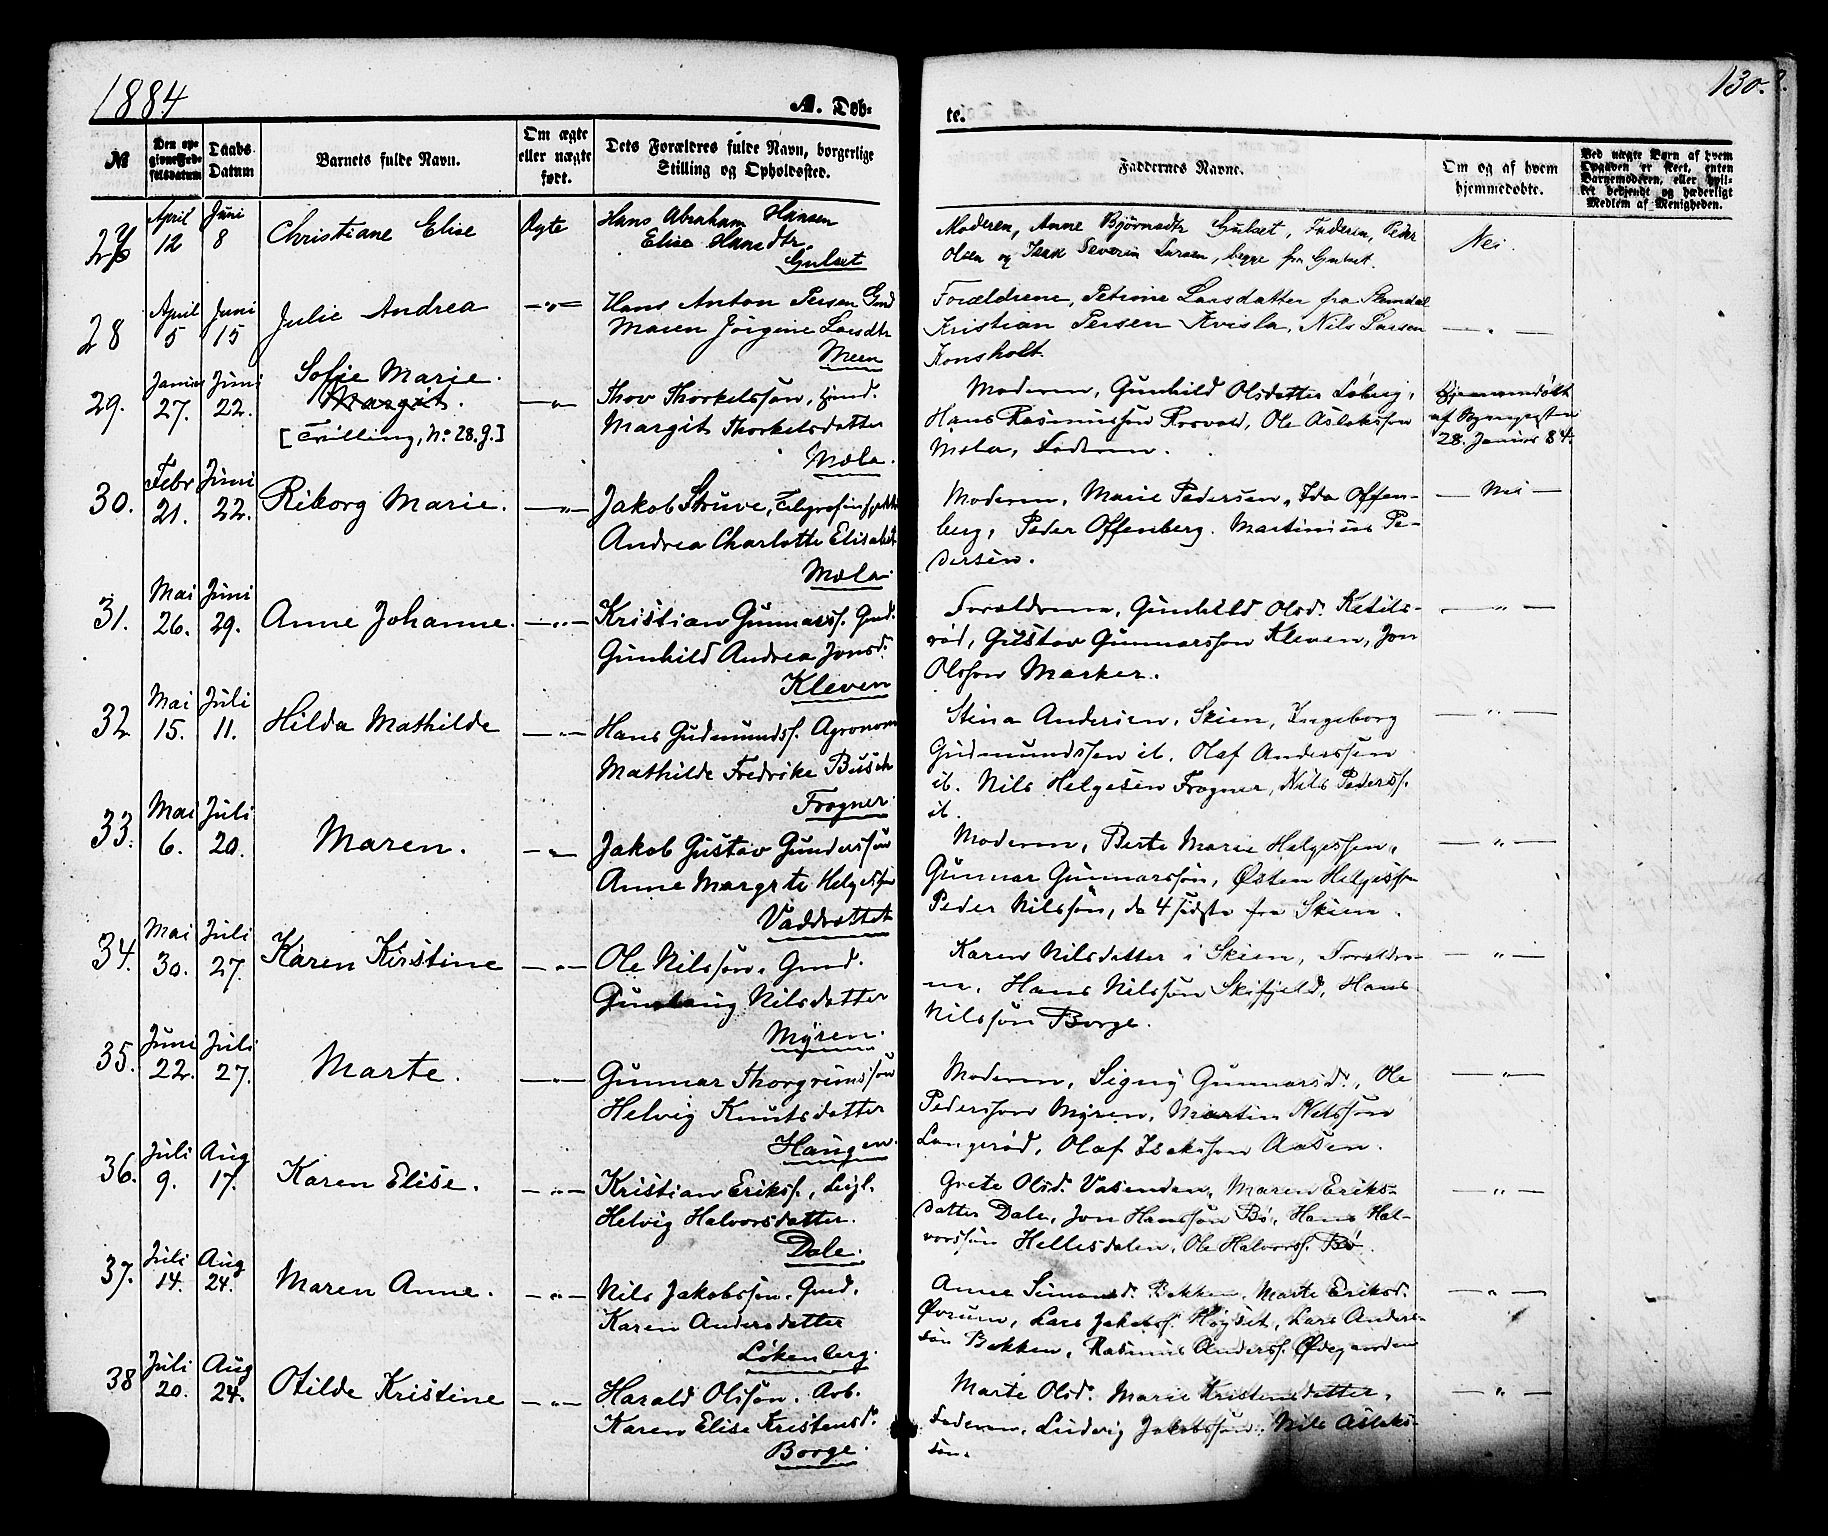 1884
A. Døb-
te.
130.
№
Den opgivne Fødselsdatum
Daabs-Datum
Barnets fulde Navn.
Om ægte eller uægte født.
Dets Forældres fulde Navn, borgerlige Stilling og Opholdssted.
Faddernes Navne.
Om og af hvem hjemmedøbte.
Ved uægte Børn af hvem Opgaven er skeet, enten Barnemoderen, eller hvilket betjende og hæderligt Medlem af Menigheden.
27 April 12 Juni 8 Christiane Elise Ægte
Hans Abraham Hansen
Elise Hansdtr
Gulset
Moderen, Anne Bjørnsdtr Gulset, Faderen, Peder
Olsen og Isak Severin Larsen, begge fra Gulset.
Nei.
28 April 5 Juni 15 Julie Andrea — " —
Hans Anton Persen Gmd
Maren Jørgine Larsdtr
Meen
Forældrene, Petrine Larsdatter fra
Kristian Persen Kvisla, Nils Larsen
Konsholt.
— " —
29. Januar 27. Juni 22. Sofie Marie.
Margit.
[Trilling, No 28. g.]
— " —
Thov Thorkelssøn, Gmd.
Margit Thorkelsdatter
Mæla.
Moderen, Gunhild Olsdatter Løberg,
Hans Rasmussøn Rosvald, Ole Aslakssøn
Mæla, Faderen.
Hjemmedøbt
af
28. Januar 84.
30. Febr 21. Juni 22. Rikorg Marie. — " —
Jakob Struve,
Andrea Charlotte Elisabet
Mæla.
Moderen, Marie Pedersen, Ida Offen-
berg, Peder Offenberg. Martinius Pe-
dersen.
— Nei —
31. Mai 26. Juni 29. Anne Johanne. — " —
Kristian Gunnarss. Gmd.
Gunhild Andrea Jonsd.
Kleven
Forældrene, Gunhild Olsd. Ketils-
rød, Gustav Gunnarssøn Kleven, Jon
Olssøn Marker.
— " —
32 Mai 15. Juli 11. Hilda Mathilde — " —
Hans Gudmundss. Agronom
Mathilde Fredrike Busch
Frogner.
Stina Andersen, Skien, Ingeborg
Gudmundssen ib. Olaf Anderssen
ib. Nils Helgesen Frogner, Nils Pederss.
ib.
— " —
33. Mai 6. Juli 20. Maren. — " —
Jakob Gustav Gunderssøn
Anne Margrte Helgessen
Vaddrættet
Moderen, Berte Marie Helgessen,
Gunnar Gunnarssøn, Østen Helgessen
Peder Nilssøn, de 4 sidste fra Skien.
— " —
34. Mai 30. Juli 27. Karen Kirstine — " —
Ole Nilssøn. Gmd.
Gunlaug Nilsdatter
Myren.
Karen Nilsdatter i Skien, Forældre-
ne, Hans Nilssøn Skifjeld, Hans
Nilssøn Borge.
— " —
35. Juni 22. Juli 27. Marte. — " —
Gunnar Thorgrimssøn
Helvig Knutsdatter
Haugen.
Moderen, Signy Gunnarsd., Ole
Pederssøn Myren, Martin Nilssøn
Langerød, Olaf Isakssøn Aasen.
— " —
36. Juli 9. Aug 17. Karen Elise. — " —
Kristian Erikss., Leigl.
Helvig Halvorsdatter.
Dale.
Grete Olsd. Vasenden, Maren Eriks-
datter Dale, Jon Hanssøn Bø, Hans Hal-
vorssøn Hellesdalen, Ole Halvorss. Bø.
— " —
37. Juli 14. Aug 24. Maren Anne. — " —
Nils Jakobssøn. Gmd.
Karen Andersdatter
Løkenberg.
Anne Simonsd. Bakken, Marte Eriksd.
Øvrum, Lars Jakobss. Høyset, Lars Anders-
søn Bakken, Rasmus Anderss. Ødegaarden
— " —
38 Juli 20. Aug 24. Otilde Kristine — " —
Harald Olssøn. Arb.
Karen Elise Kristensd.
Borge.
Marte Olsd. Marie Kristensdatter,
Faderen, Ludvig Jakobssøn, Nils Aslaks-
søn.
— " —